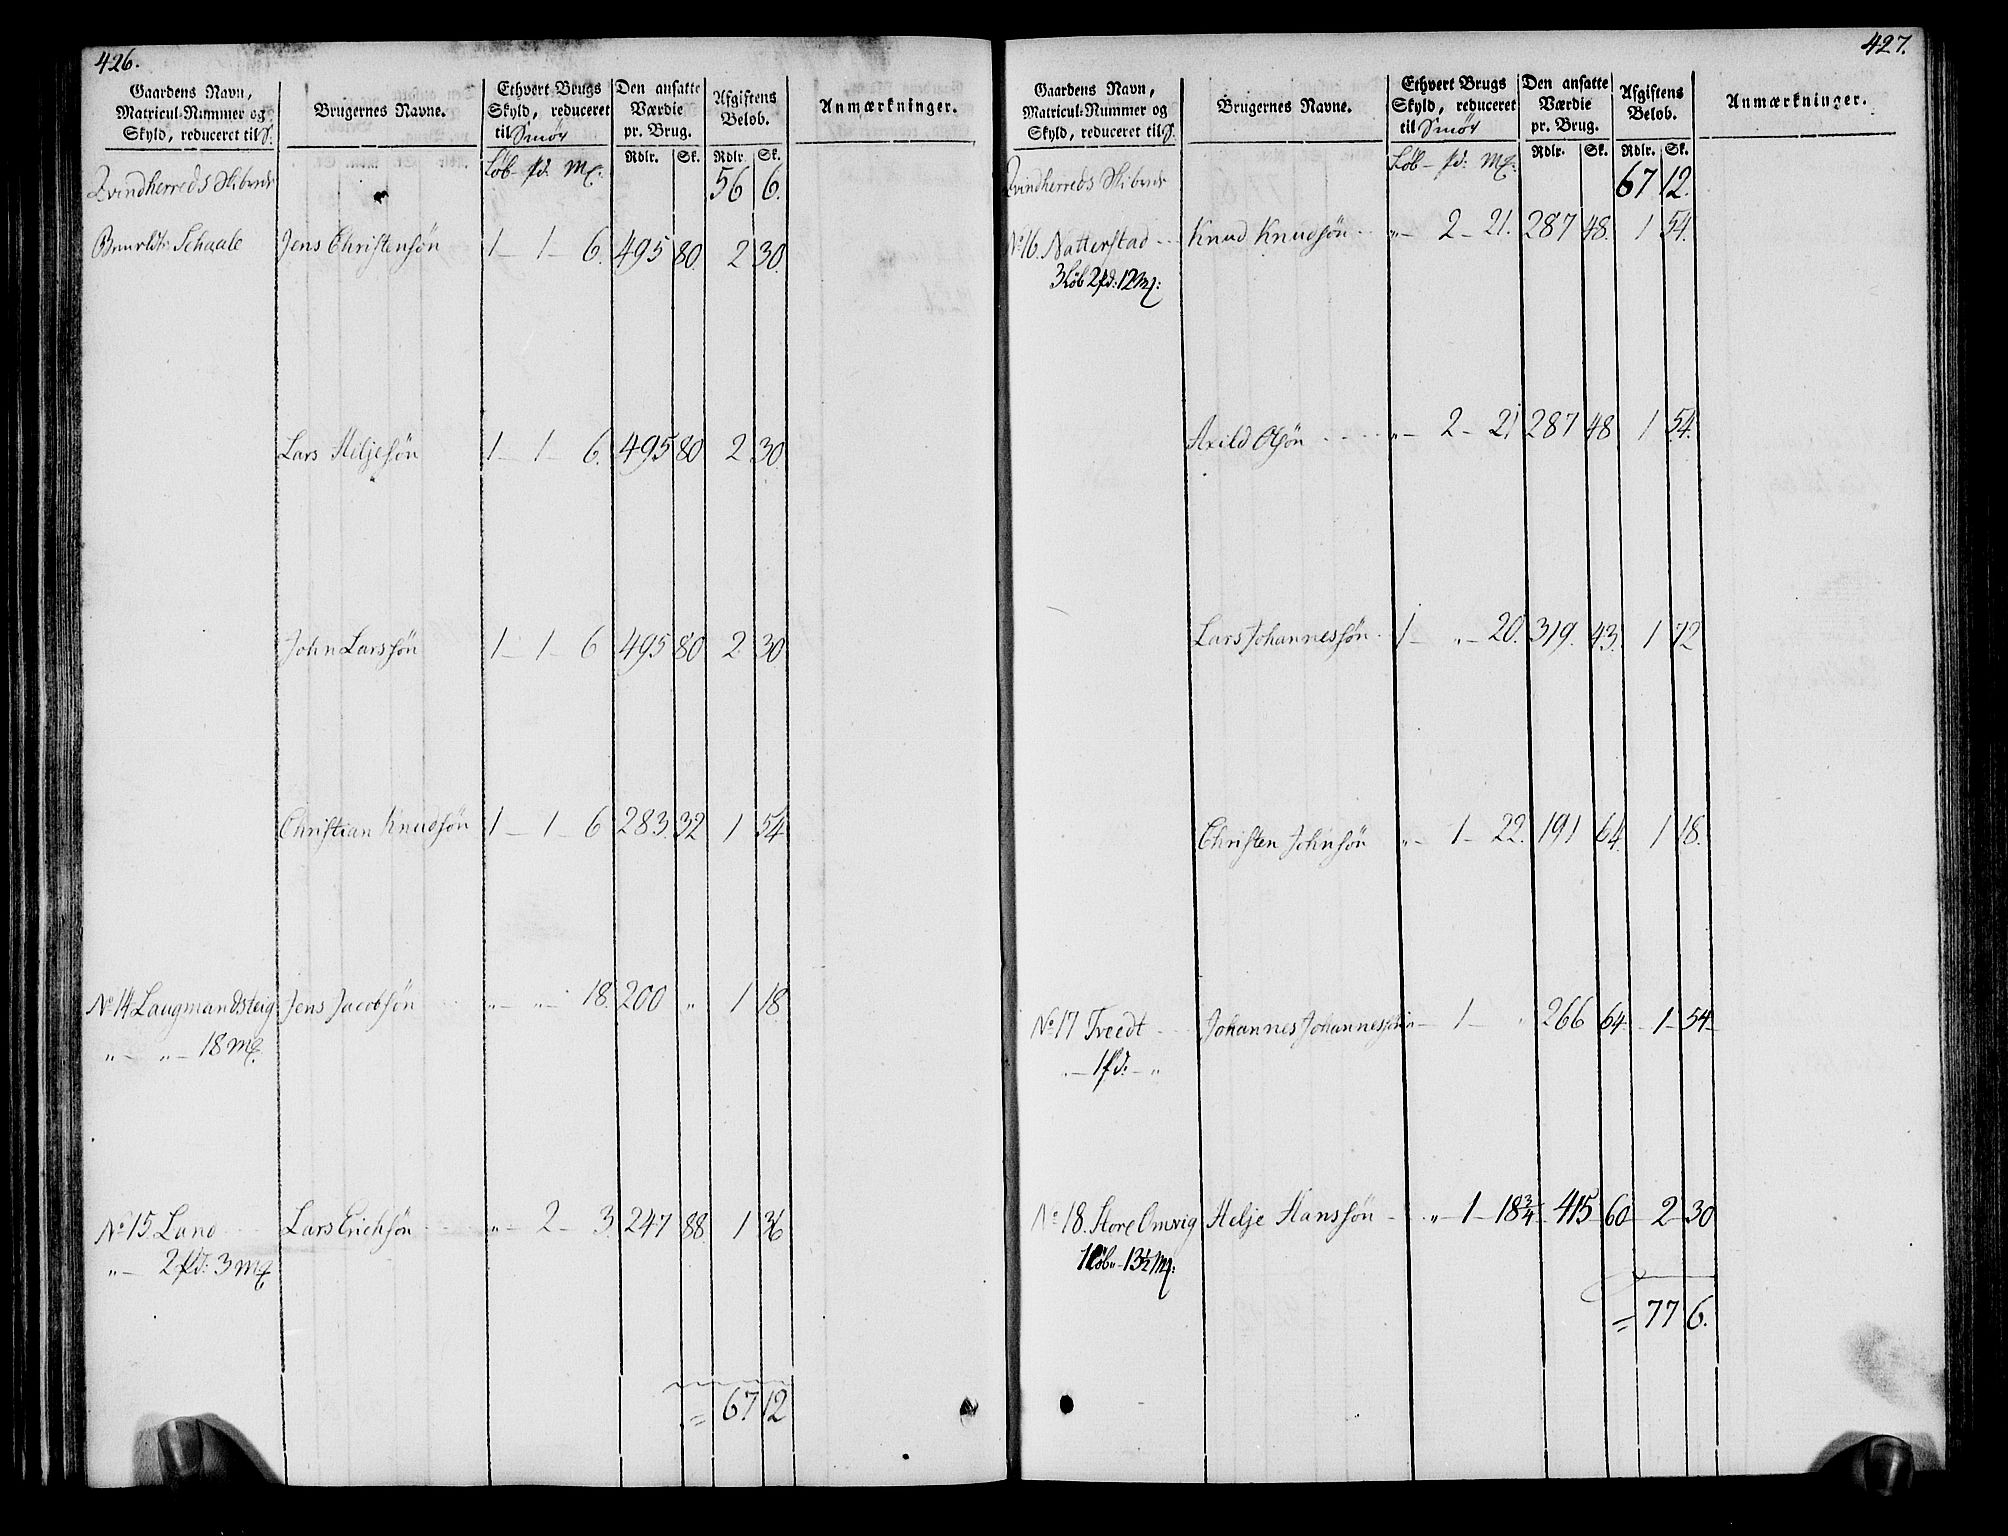 426.
Gaardens Navn, Matricul-Nummer og Skyld, reduceret til S. | Brugernes Navne. | Ethvert Brugs Skyld, reduceret til Smør | Den ansatte Værdie pr. Brug. | Afgiftens Beløb. | Anmærkninger.
Løb – pd: Mk: | Rdlr. | Sk. | Rdlr. | Sk.
Qvindherreds Skibrede 56 6.
Schaale Jens Christensøn 1 – 1 – 6. 495 80. 2 30.
Lars Heljesøn 1 – 1 – 6. 495 80 2 30.
John Larssøn 1 – 1 – 6 495 80 2 30.
Christian Knudsøn 1 – 1 – 6 283. 32 1 54
No 14 Laugmandsteig Jens Jacobsøn „ – „ – 18. 200 „ 1 18
„ – „ – 18 Mk.
No 15 Land Lars Erichsøn „ – 2 – 3. 247 88. 1 36
„ – 2 pd: 3 Mk
= 67 12
427.
Gaardens Navn, Matricul-Nummer og Skyld, reduceret til S. | Brugernes Navne. | Ethvert Brugs Skyld, reduceret til Smør | Den ansatte Værdie pr. Brug. | Afgiftens Beløb. | Anmærkninger.
Løb – pd: Mk: | Rdlr. | Sk. | Rdlr. | Sk.
Qvindherreds Skibrede 67 12.
No 16. Natterstad Knud Knudsøn „ – 2 – 21. 287 48. 1 54.
3 Løb 2 pd: 12 Mk:
Axild Olsøn „ – 2 – 21 287 48 1 54.
Lars Johannessøn 1 – „ – 20. 319. 43. 1 72
Christen Johnsøn „ – 1 – 22. 191 64. 1 18.
No 17 Tvedt Johannes Johannessøn „ – 1 – „ 266 64 1 54
„ – 1 pd: – „
No 18. Store Omvig Helje Hanssøn „ 1 – 18 3/4 415 60 2 30
1 Løb „ – 13 1/2 Mk:
= 77 6.